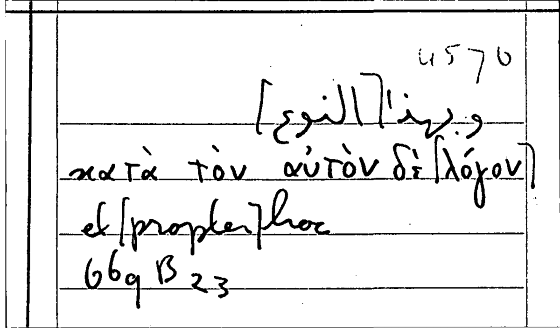 4570
وبهذا [النوع]
κατὰ τὸν αὐτὸν δὲ [λόγον]
et [propter] hoc
669 B 23